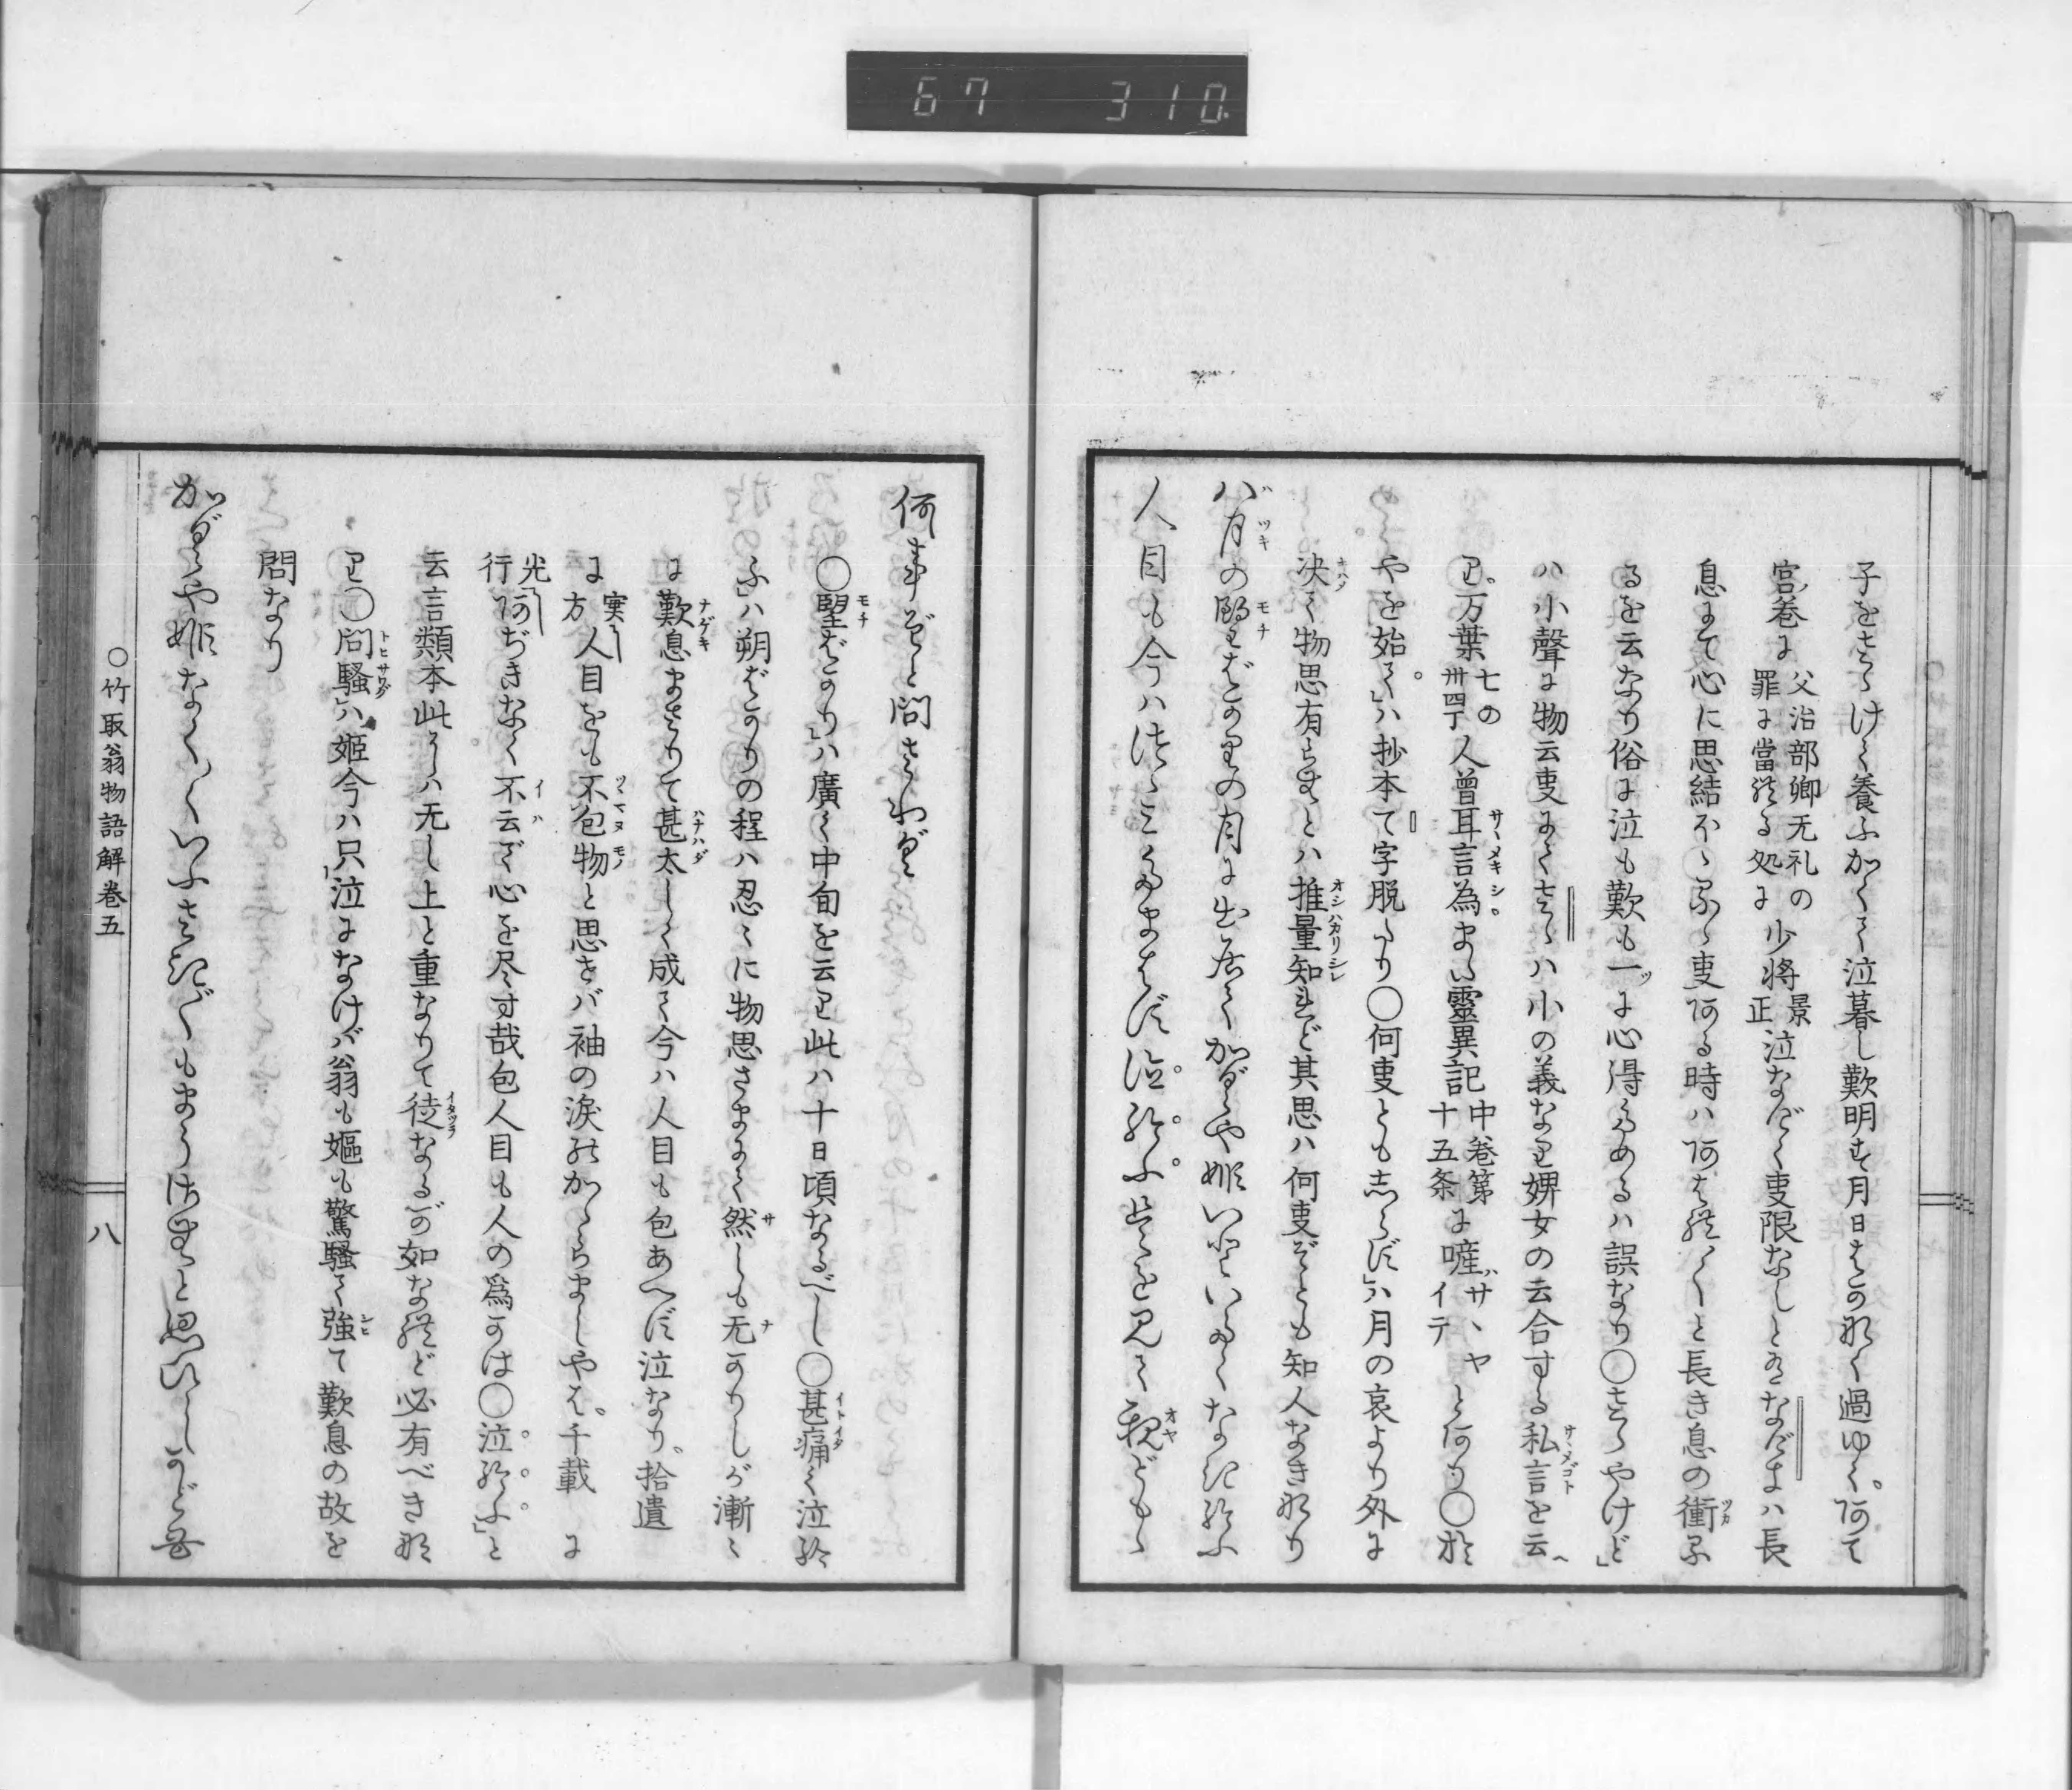 67 310.
子をまうけて養ふかくて泣暮し歎明す月日はかなく過ゆく。阿て
宮巻に 父治部卿无礼の罪に當れる処に 少将景正泣なげく事限なしと有なげきハ長
息にて心に思結ぼゝるゝ事阿る時ハ阿はれ〳〵と長き息の衝る
るを云なり俗に泣も歎も一ツに心得ためるハ誤なり○さゝやけど」
ハ小聲に物云事にてさゝハ小の義なり婢女の云合する私言を云へ
り。万葉 七の卅四丁 人曾耳言為また靈異記 中巻第十五条 に嘊 サヽヤイテ と阿り○於
やを始て」ハ抄本て字脱たり○何事ともしらず」ハ月の哀より外に
決て物思有らむとハ推量知れど其思ハ何事ぞとも知人なきなり
八月の望ばかりの月に出居てかぐや姫いといたくなき給ふ
人目も今ハつゝみたまはず泣給ふ是を見て親どもゝ
何事ぞと問さわぐ
○望ばかり」ハ廣く中旬を云り此ハ十日頃なるべし○甚痛く泣給
ふ」ハ朔ばかりの程ハ忍々に物思さまにて然しも无かりしが漸々
に歎息まさりて甚太しく成て今ハ人目も包あへず泣なり。拾遺
に 実方 人目をも不包物と思せバ袖の涙のかゝらましやは。千載 に
光行 阿ぢきなく不云で心を尽す哉包人目も人の爲かは○泣給ふ」と
云言類本此うしハ无し上と重なりて徒なるが如なれど必有べきな
り○問騒」ハ姫今ハ只泣になけバ翁も嫗も驚騒て強て歎息の故を
問なり
かぐや姫なく〳〵いふさき〴〵もまうさむと思ひしかども
○竹取翁物語解巻五
八